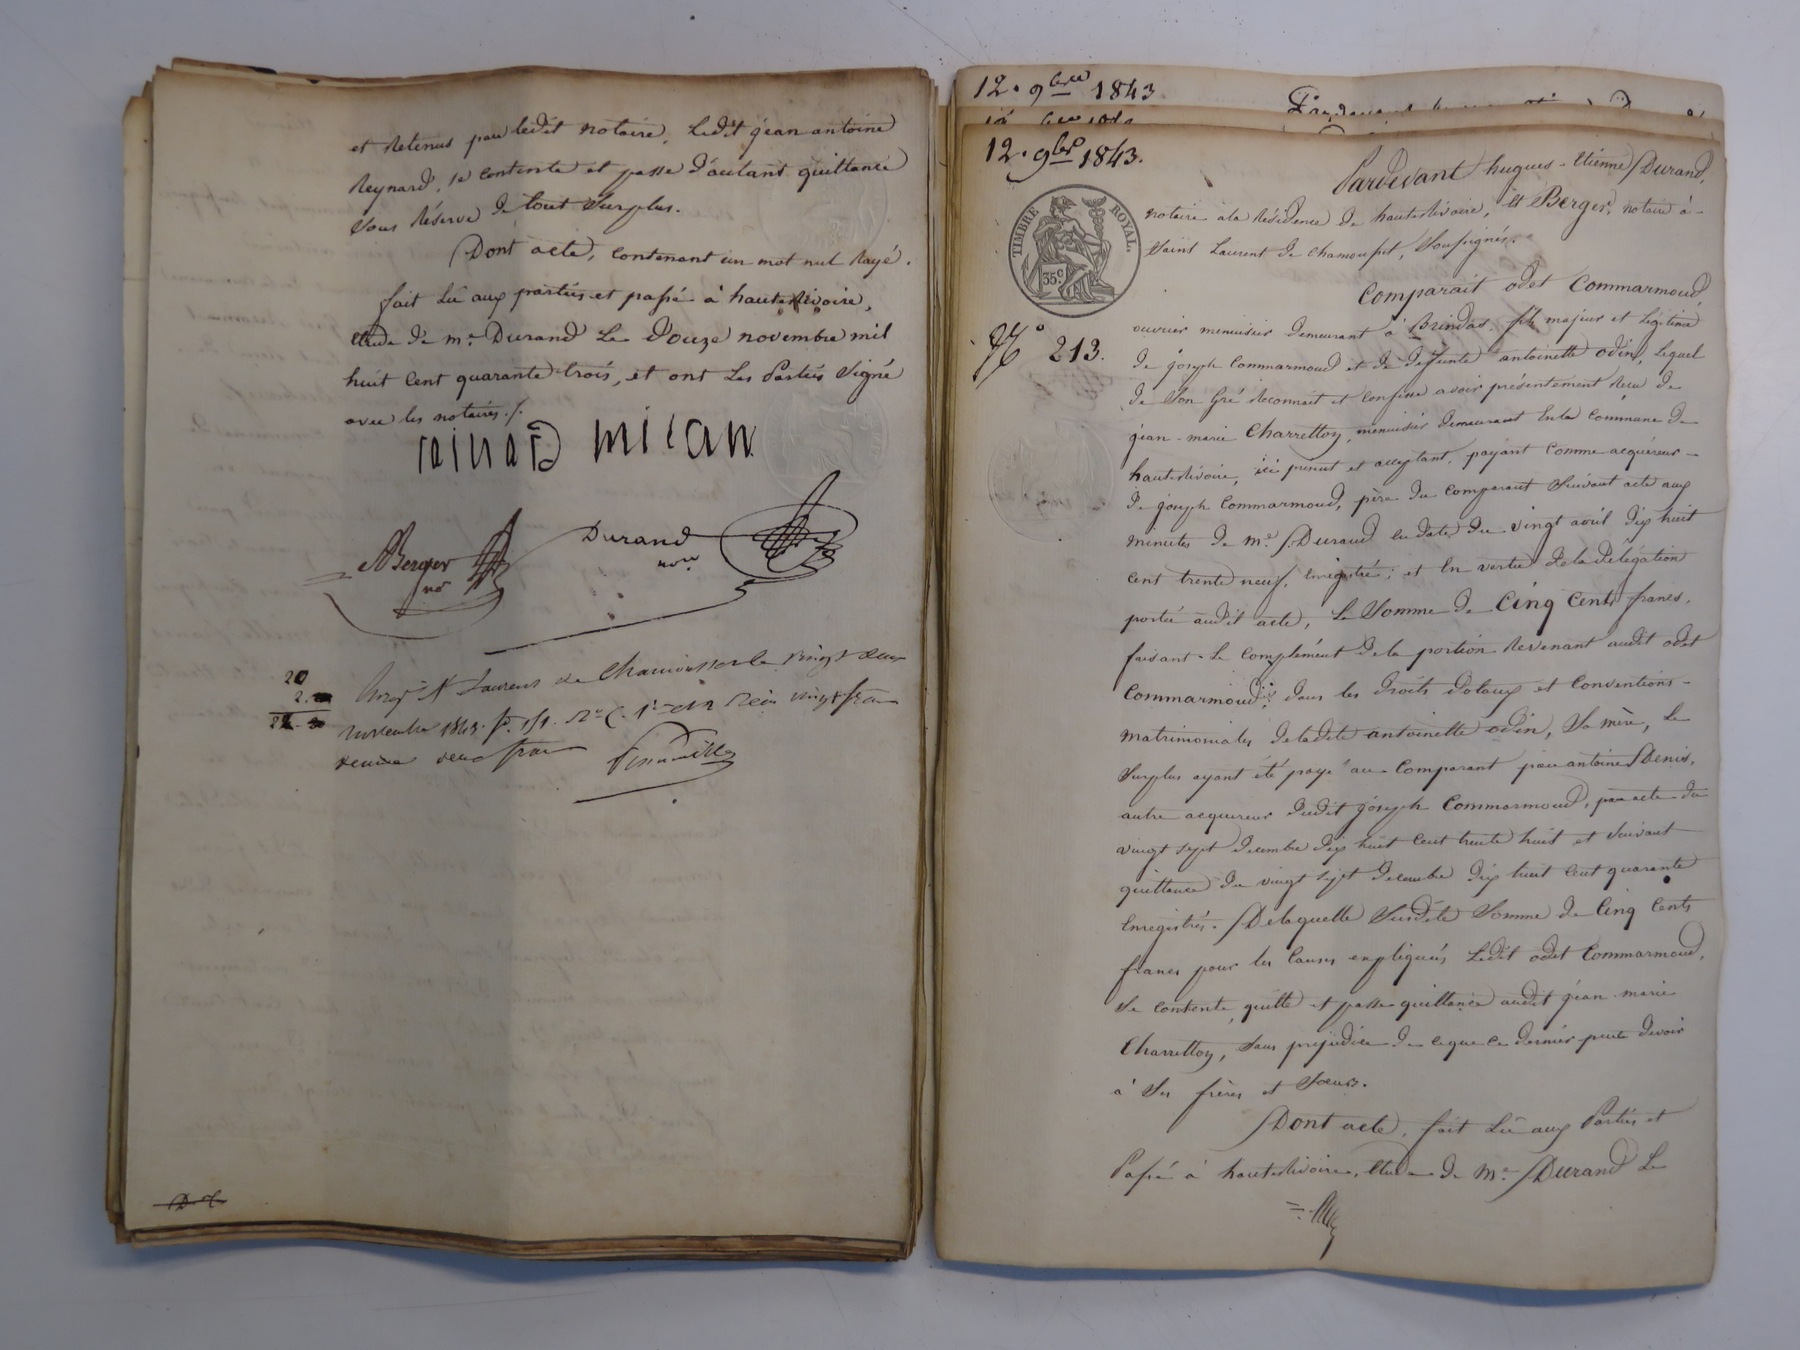 et Retenus par ledit notaire, Ledit jean antoine
Reynard, se contente et passe d'autant quittance
sous Réserve de tout surplus.
Dont acte, contenant un mot nul Rayé.
fait Lû aux parties et passé à hauterivoire,
étude de me Durand Le Douze novembre mil
huit cent quarante trois, et ont Les Parties Signé
avec les notaires./.
rainard milan
Berger
nre
Durand
nre
20
2.
22
Enregé St Laurent de Chamousset le vingt deux
novembre 1843. fo 151. Ro C. 1re et 2 Reçu vingt francs
deux francs
12. 9bre 1843
12. 9bre 1843.
Pardevant hugues-étienne Durand,
notaire à la Résidence de hauterivoire, et Berger, notaire à
Saint Laurent de Chamousset, Soussignés.
TIMBRE ROYAL.
35 c.
Comparait odet Commarmond,
No 213.
ouvrier menuisier demeurant à Brindas, fils majeur et légitime
de joseph Commarmond et de défunte antoinette odin, Lequel
de Son Gré Reconnait et confesse avoir présentement Reçu de
jean-marie Charretton, menuisier demeurant En la commune de
hauterivoire, ici présent et acceptant, payant Comme acquéreur
de joseph Commarmond, père du comparant Suivant acte aux
minutes de me Durand en date du vingt avril dix huit
cent trente neuf, Enregistré; et En vertu de la délégation
portée audit acte, La Somme de Cinq Cents francs,
faisant Le complément de la portion Revenant audit odet
Commarmond, dans les droits dotaux et Conventions
matrimoniales de ladite antoinette odin, Sa mère, Le
Surplus ayant été payé au Comparant par antoine Denis,
autre acquéreur dudit joseph Commarmond, par acte du
vingt sept décembre dix huit cent trente huit et Suivant
quittance du vingt sept décembre dix huit cent quarante
Enregistrés. De laquelle Susdite Somme de Cinq Cents
francs pour les Causes expliquées Ledit odet Commarmond,
se contente, quitte et passe quittance audit jean marie
Charretton, Sans préjudice de ce que ce dernier peut devoir
à Ses frères et Soeurs.
Dont acte, fait Lû aux Parties et
Passé à hauterivoire, étude de Me Durand Le